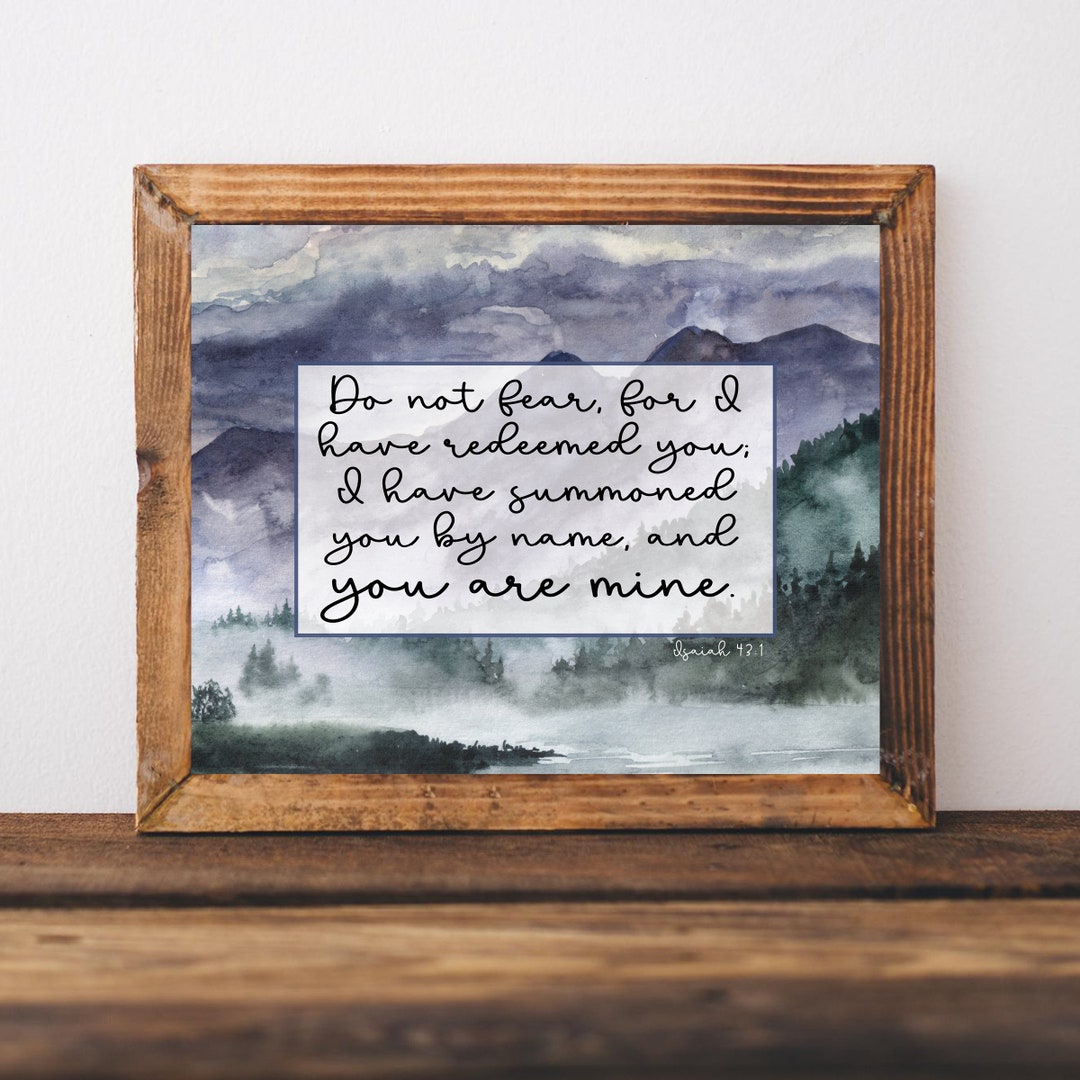 Do not fear, for I
have redeemed you;
I have summoned
you by name, and
you are mine.
Isaiah 43:1